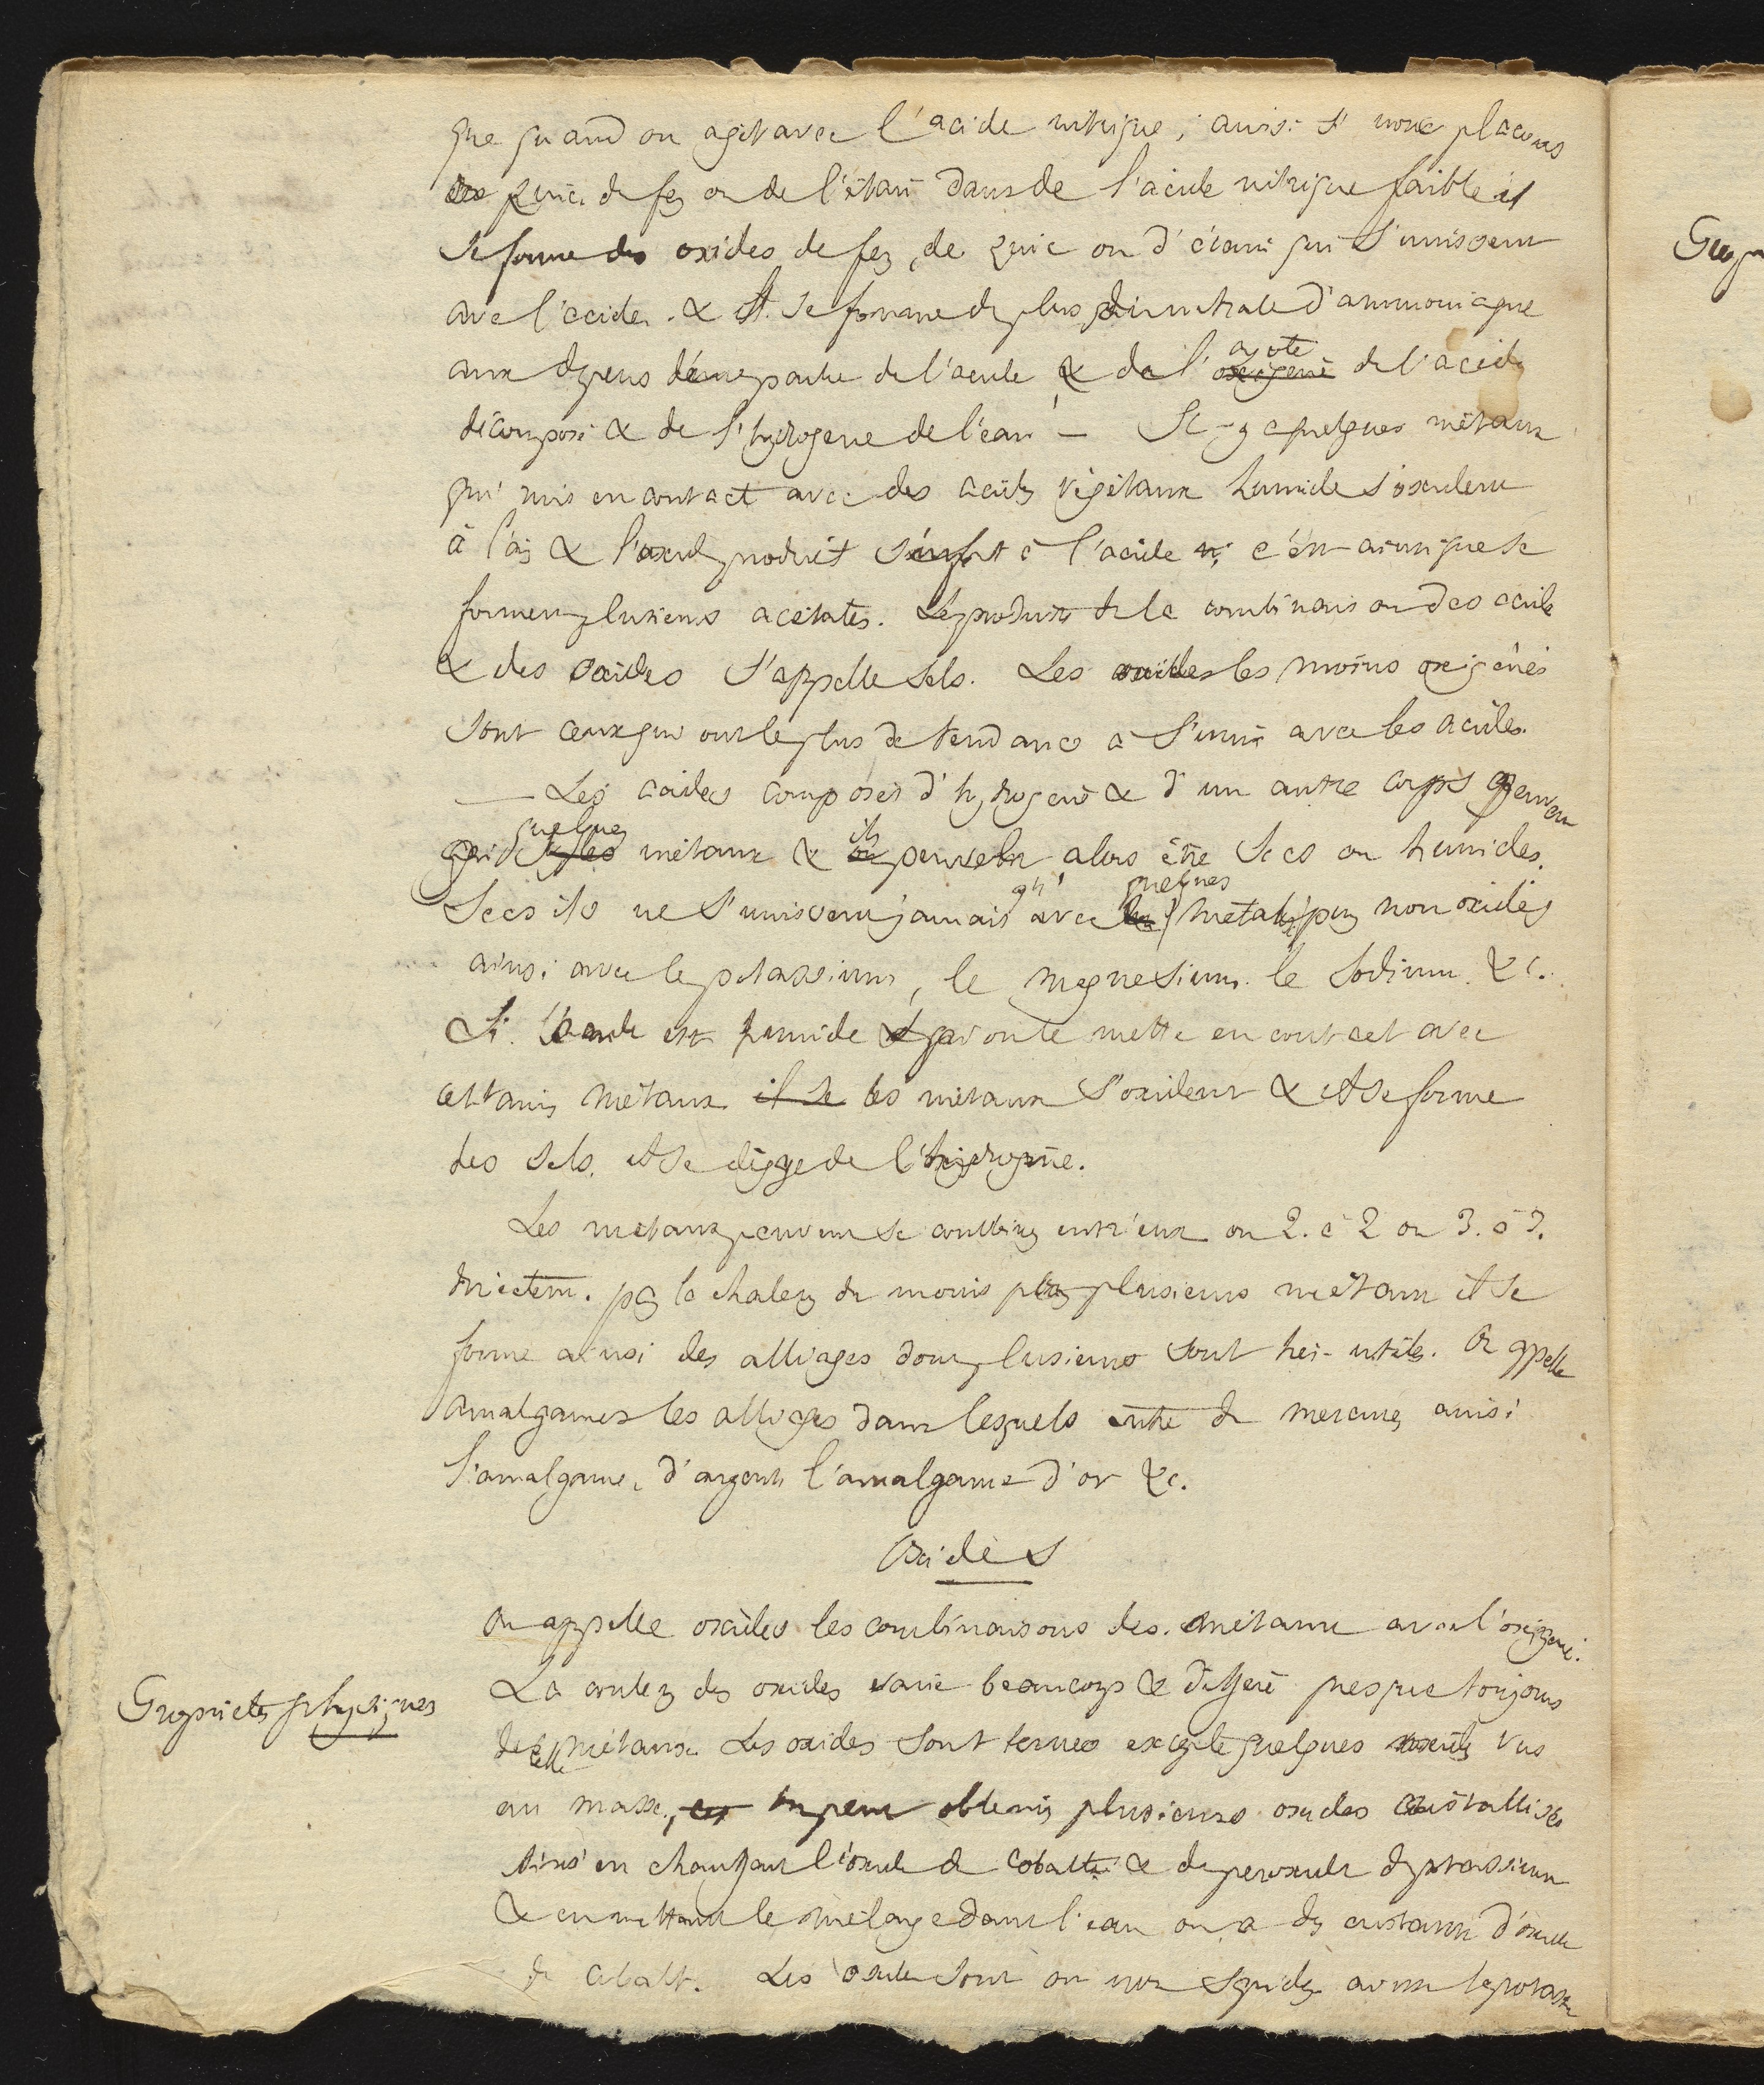 que quand on agit avec l'acide nitrique, ainsi si nous placons
du zinc du fer ou de l'étain dans de l'acide nitrique faible il
se forme des oxides de fer, de zinc ou d'étain qui s'unissent
avec l'acide. & il se forme de plus du nitrate d'ammoniaque
aux depens d'une partie de l'acide & de l' oxigene azote de l'acide
décomposé & de l'hydrogene de l'eau — Il y a quelques métaux
qui mis en contact avec des acides végétaux humide s'oxident
à l'air & l'oxide produit s'unit à l'acide c'est ainsi que se
forment plusieurs acétates. Les produits de la combinaison des acide
& des oxides s'appelle sels. Les oxides les moins oxigénés
sont ceux qui ont le plus de tendance à s'unir avec les acides.
— Les acides composés d'hydrogene & d'un autre corps peuvent
quelques
métaux & ils peuvent alors être secs ou humides.
Secs ils ne s'unissent jamais qu' avec quelques métaux purs non oxidés
ainsi avec le potassium, le magnesium le sodium &c.
Si l'acide est humide & qu'on le mette en contact avec
certains métaux il se les métaux s'oxident & il se forme
des sels. il se dégage de l'hidrogène.
Les métaux peuvent se combiner entr'eux ou 2. à 2 ou 3. à 3.
directem. par la chaleur du moins pour plusieurs métaux il se
forme ainsi des alliages dont plusieurs sont très-utiles. On appelle
amalgames les alliages dans lesquels entre du mercure, ainsi
l'amalgame d'argent l'amalgame d'or &c.
Oxides
On appelle oxides les combinaisons des métaux avec l'oxigene.
Propriétés physiques
La couleur des oxides varie beaucoup & differe presque toujours
de celle métaux. Les oxides sont ternes excepté quelques oxides vus
en masse, on peut obtenir plusieurs oxides cristallisés
ainsi en chauffant l'oxide de cobalt & du peroxide de potassium
& en mettant le mélange dans l'eau on a des cristaux d'oxide
de cobalt. Les oxides sont ou non sapides la potasse